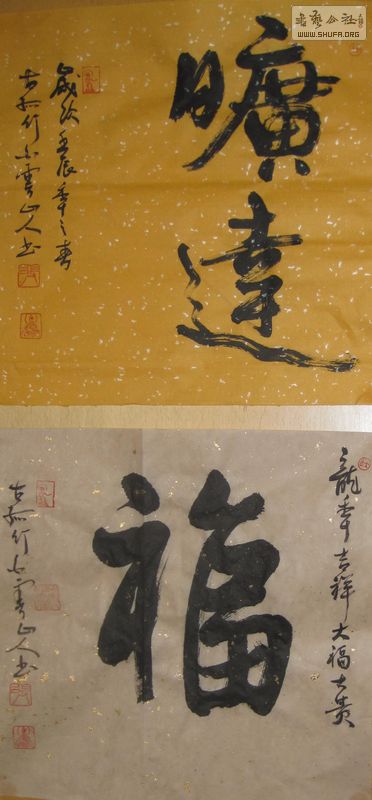 書藝公社
WWW.SHUFA.ORG
曠達
歲次壬辰年之春
古孤竹白雲山人書
龍年吉祥大福大貴
福
古孤竹白雲山人書